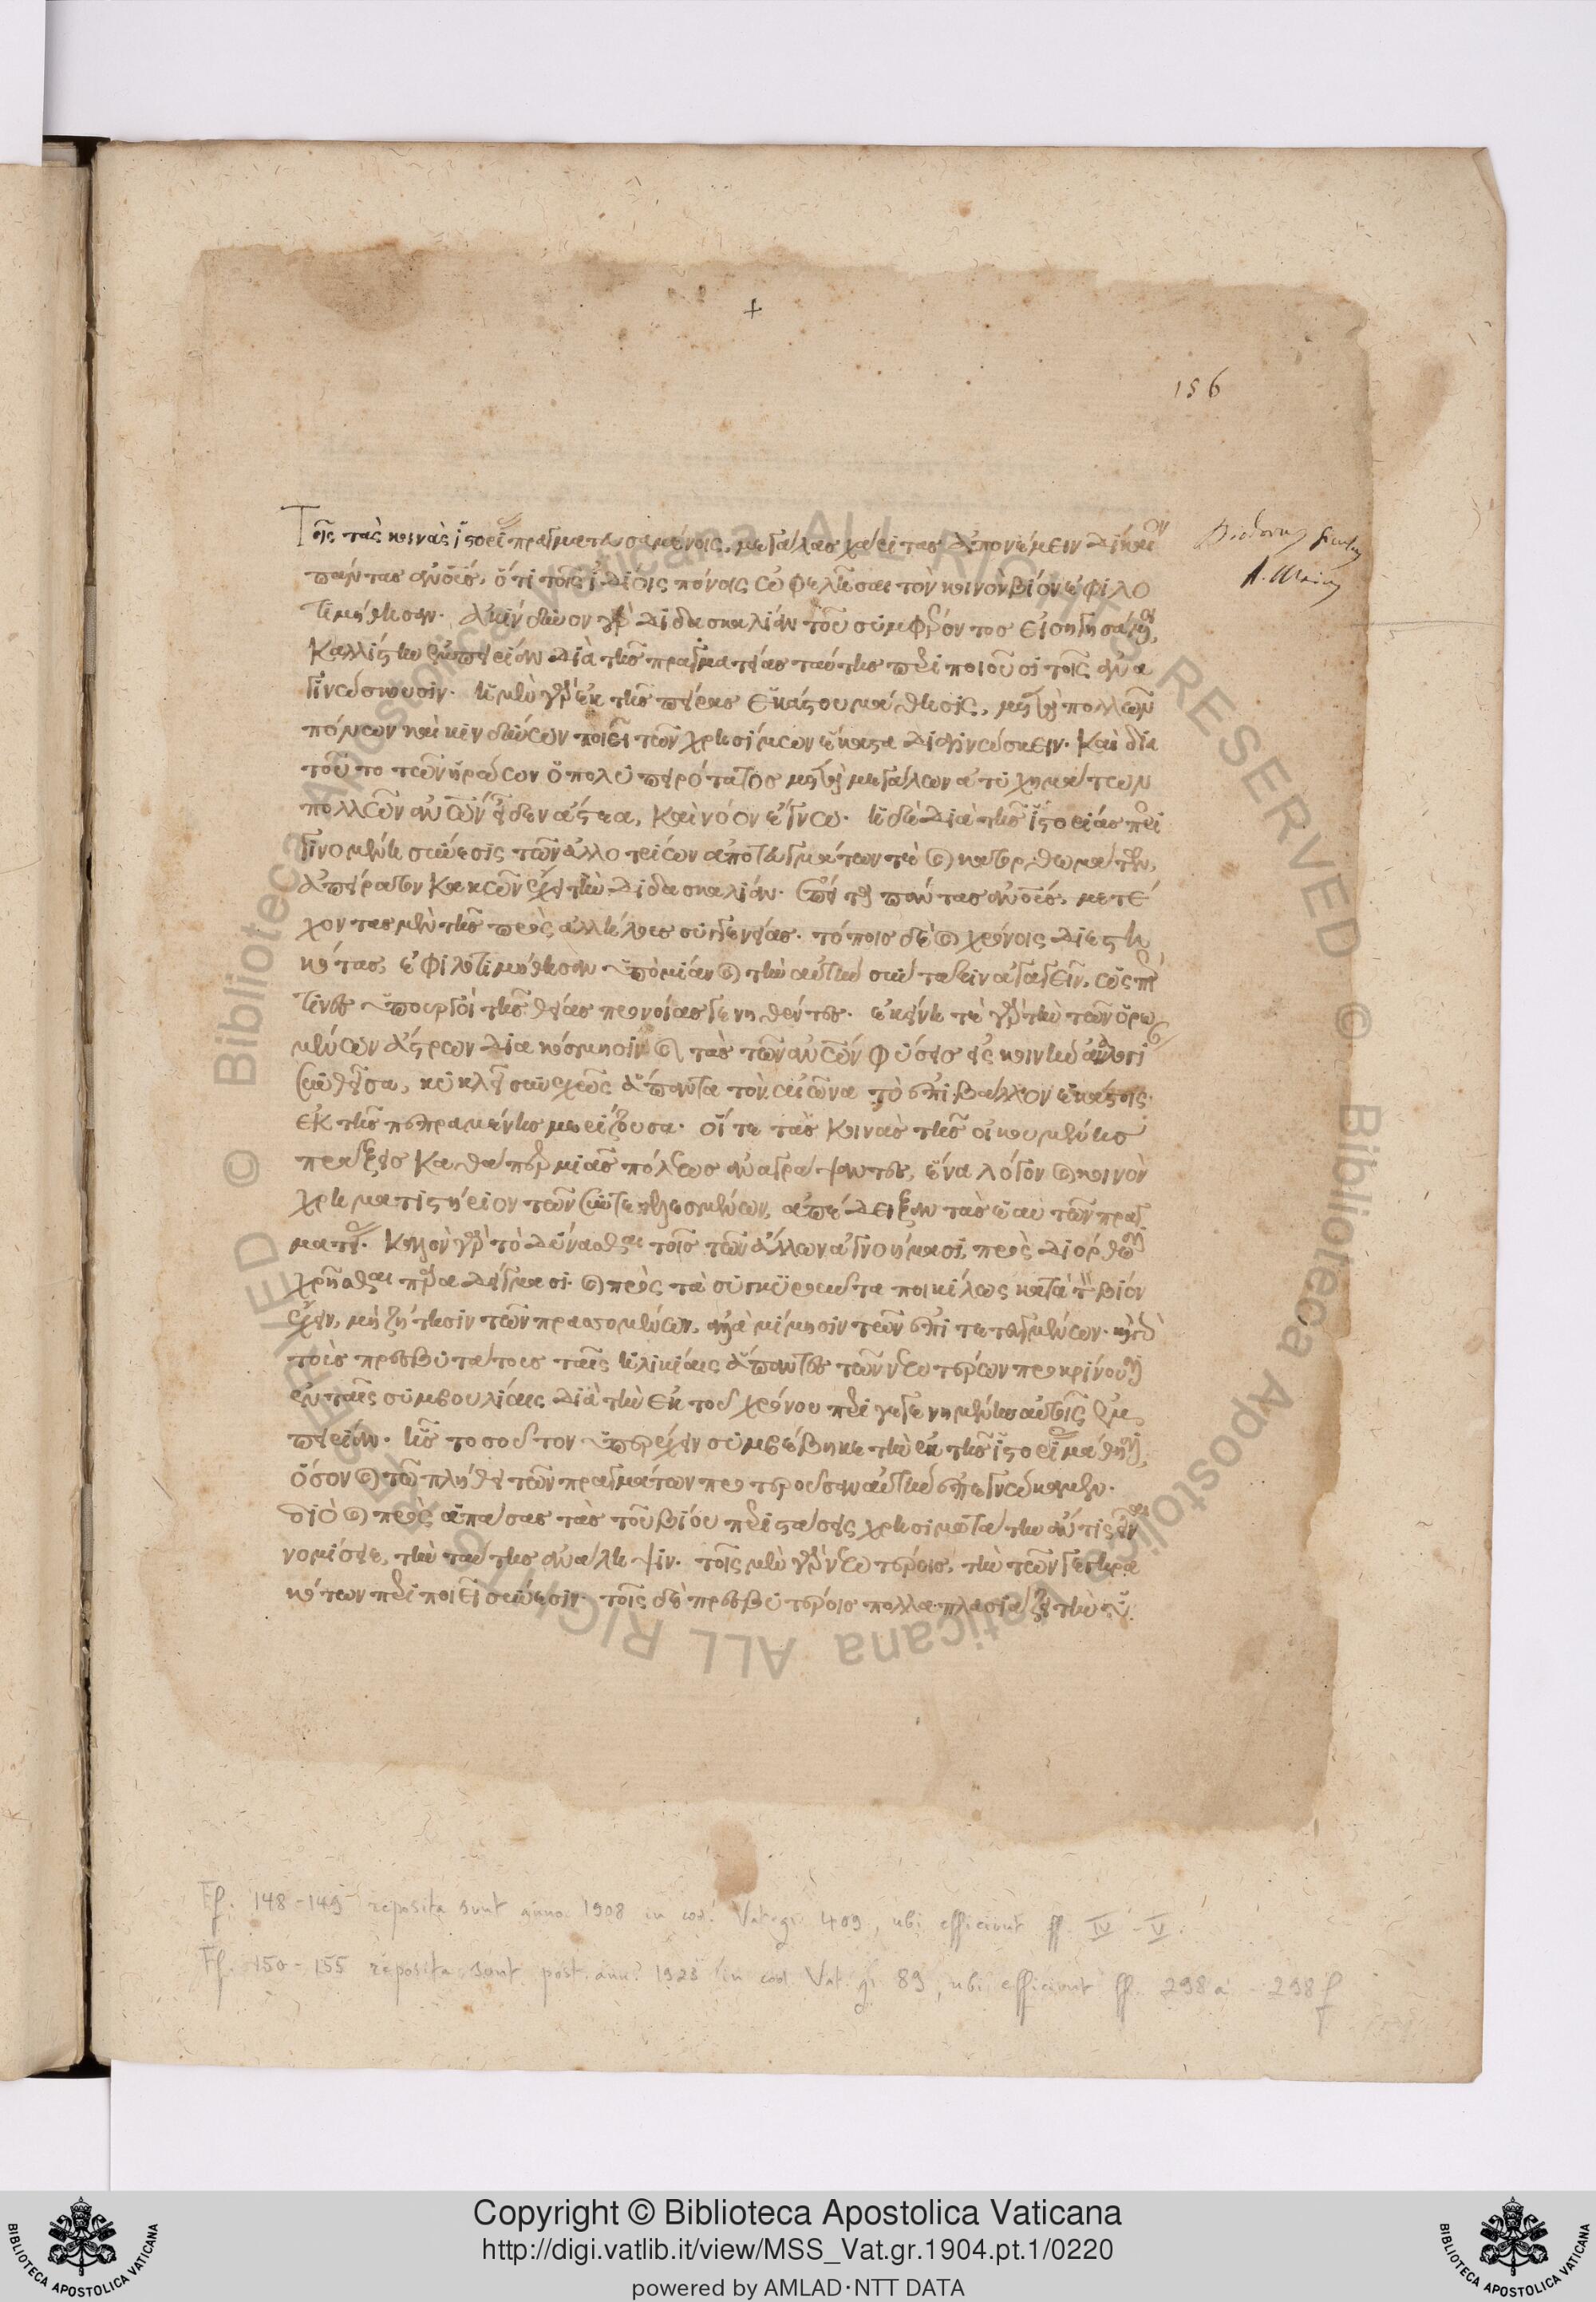 +
156
Τοῖς τὰς κοινὰς ἱστορί πραγματευσαμένοις, μεγάλας χάριτας ἀπονέμειν δίκαιον
πάντας ἀνους, ὅτι τοῖς ἰδίοις πόνοις ὠφελῆσαι τὸν κοινὸν βίον ἐφιλο
τιμήθησαν. ἀκίνδυνον γὰρ διδασκαλίαν τοῦ συμφέροντος εἰσηγησάμενοι,
καλλίστην ἐμπειρίαν διὰ τῆς πραγματείας ταύτης περιποιοῦσι τοῖς ἀνα
γινώσκουσιν. ἡ μὲν γὰρ ἐκ τῆς πείρας ἑκάστου μάθησις, μετὰ πολλῶν
πόνων καὶ κινδύνων ποιεῖ τῶν χρησίμων ἕκαστα διαγινώσκειν. Καὶ διὰ
τοῦτο τῶν ἡρώων ὁ πολυπειρότατος μετὰ μεγάλων ἀτυχημάτων
πολλῶν ἀνων ἴδεν ἄστεα, καὶ νόον ἔγνω. ἡ δὲ διὰ τῆς ἱστορίας περι
γινομένη σύνεσις τῶν ἀλλοτρίων ἀποτευγμάτων τε καὶ κατορθωμάτων,
ἀπείρατον κακῶν ἔχει τὴν διδασκαλίαν. ἔπειτα πάντας ἀνους, μετέ
χοντας μὲν τῆς πρὸς ἀλλήλους συγγενείας. τόποις δὲ καὶ χρόνοις διεστη
κότας, ἐφιλοτιμήθησαν ὑπὸ μίαν καὶ τὴν αὐτὴν σύνταξιν ἀγαγεῖν, ὥσπερ
τινες ὑπουργοὶ τῆς θείας προνοίας γενηθέντες. ἐκείνη τε γὰρ τὴν τῶν ὁρω
μένων ἄστρων διακόσμησιν καὶ τὰς τῶν ἀνων φύσεις εἰς κοινὴν ἀναλογί
συνθεῖσα, κυκλεῖ συνεχῶς ἅπαντα τὸν αἰῶνα τὸ ἐπιβάλλον ἑκάστοις
ἐκ τῆς πεπρωμένης μερίζουσα. οἵ τε τὰς κοινὰς τῆς οἰκουμένης
πράξεις καθάπερ μιᾶς πόλεως ἀναγράψαντες, ἕνα λόγον καὶ κοινὸν
χρηματιστήριον τῶν συντετελεσμένων, ἀπέδειξαν τὰς ἑαυτῶν πραγ
ματ. Καλὸν γὰρ τὸ δύνασθαι τοῖς τῶν ἄλλων ἀγνοήμασι, πρὸς διόρθωσιν
χρῆσθαι παραδείγμασι. καὶ πρὸς τὰ συγκυροῦντα ποικίλως κατὰ τὸν βίον
ἔχειν, μὴ ζήτησιν τῶν πρασσομένων, ἀλλὰ μίμησιν τῶν ἐπιτετευγμένων. καὶ γὰρ
τοὺς πρεσβυτάτους ταῖς ἡλικίαις ἅπαντες τῶν νεωτέρων προκρίνουσιν
ἐν ταῖς συμβουλίαις διὰ τὴν ἐκ τοῦ χρόνου περιγεγενημένην αὐτοῖς ἐμ
πειρίαν. ἧς τοσοῦτον ὑπερέχειν συμβέβηκε τὴν ἐκ τῆς ἱστορί μάθησιν,
ὅσον καὶ τῷ πλήθει τῶν πραγμάτων προτεροῦσαν αὐτὴν ἐπεγνώκαμεν.
διὸ καὶ πρὸς ἁπάσας τὰς τοῦ βίου περιστάσεις χρησιμωτάτην ἄν τις εἶναι
νομίσειε, τὴν ταύτης ἀνάληψιν. τοῖς μὲν γὰρ νεωτέροις, τὴν τῶν γεγηρα
κότων περιποιεῖ σύνεσιν. τοῖς δὲ πρεσβυτέροις πολλαπλασιάζει τὴν ὑ
Diodorus Siculus
A. Maius
Ff. 148-149 reposita sunt anno 1908 in cod. Vat. gr. 409, ubi efficiunt ff. IV - V.
Ff. 150-155 reposita sunt post ann. 1923 in cod. Vat. gr. 89, ubi efficiunt ff. 298 a - 298 f
© Biblioteca Apostolica Vaticana ALL RIGHTS RESERVED © Biblioteca Apostolica Vaticana ALL RIGHTS RESERVED
BIBLIOTECA APOSTOLICA VATICANA
Copyright © Biblioteca Apostolica Vaticana
http://digi.vatlib.it/view/MSS_Vat.gr.1904.pt.1/0220
powered by AMLAD·NTT DATA
BIBLIOTECA APOSTOLICA VATICANA